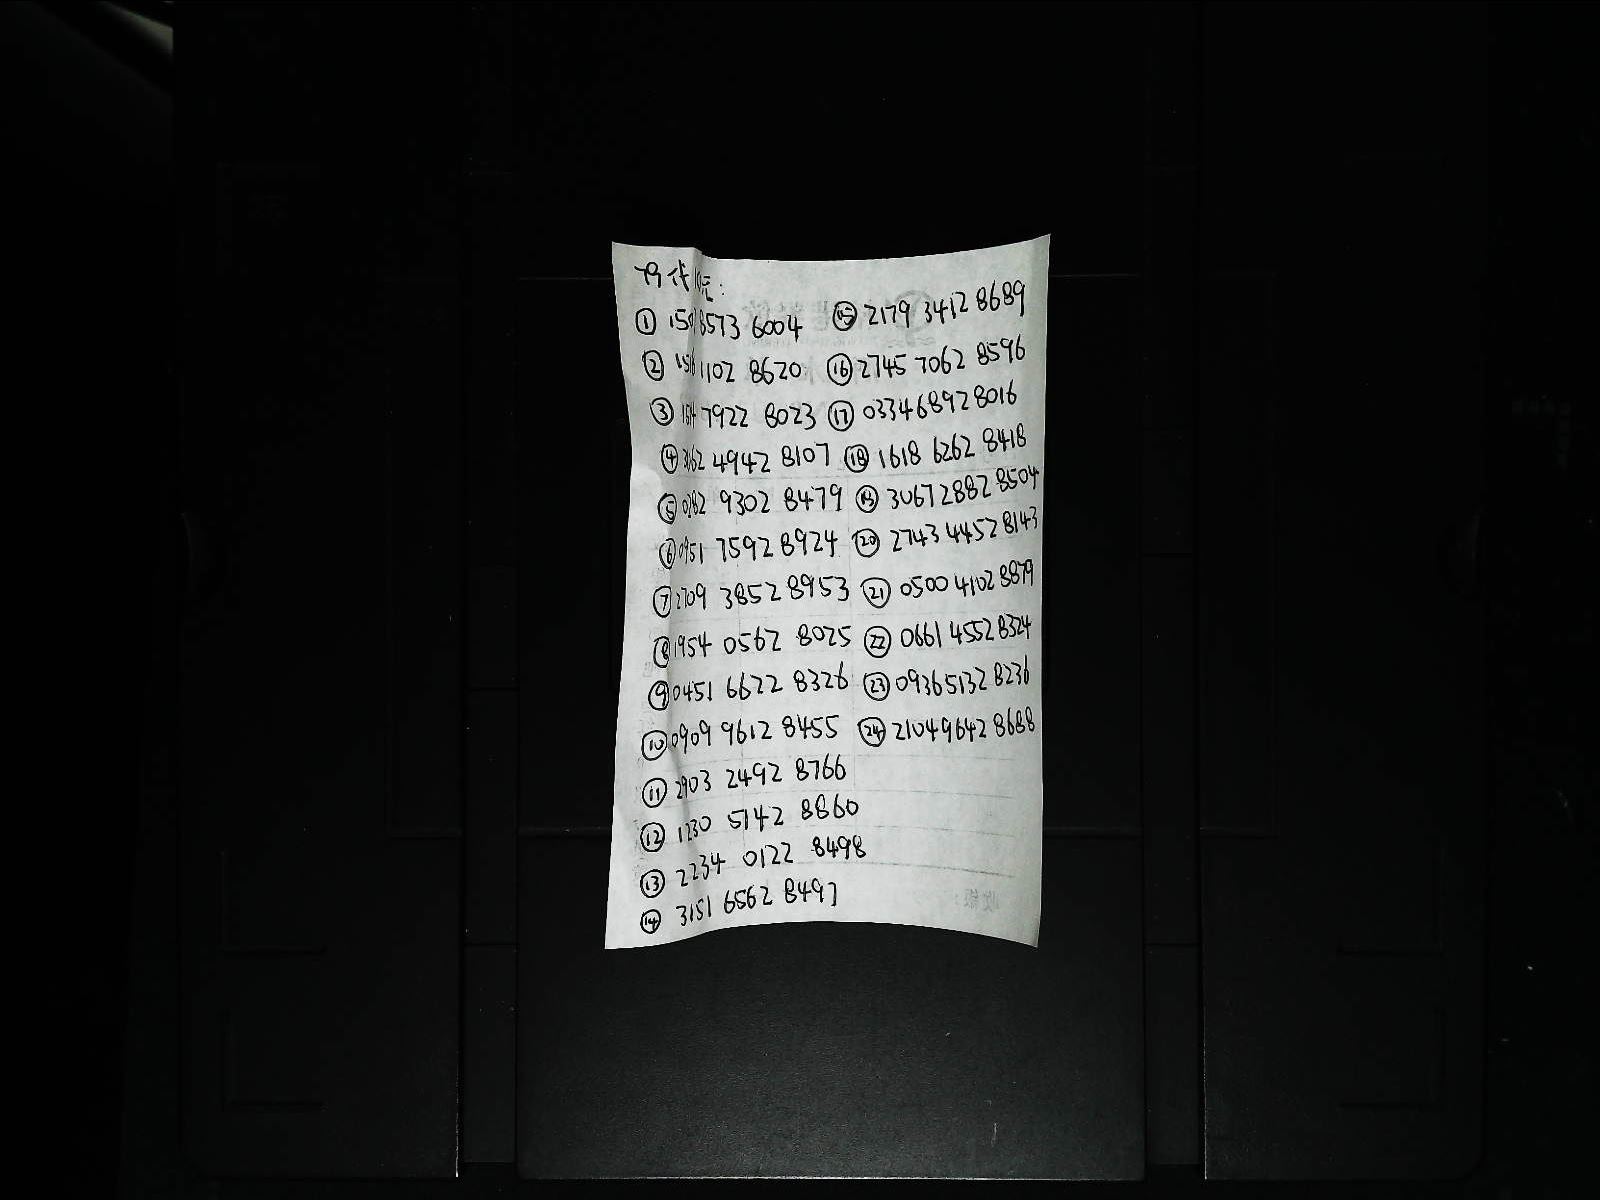 ① 8573 6004
② 1102 8620
③ 7922 8023
④ 3162 4942 8107
⑤ 0282 9302 8479
⑥ 0951 7592 8924
⑦ 2709 3852 8953
⑧ 1954 0562 8025
⑨ 0451 6622 8326
⑩ 0909 9612 8455
⑪ 2903 2492 8766
⑫ 1230 5142 8860
⑬ 2234 0122 8498
⑭ 3151 6562 8497
⑮ 2179 3412 8689
⑯ 2745 7062 8596
⑰ 0334 6892 8016
⑱ 1618 6262 8418
⑲ 3067 2882 8504
⑳ 2743 4452 8143
㉑ 0500 4102 8879
㉒ 0661 4552 8324
㉓ 0936 5132 8236
㉔ 2104 9642 8688